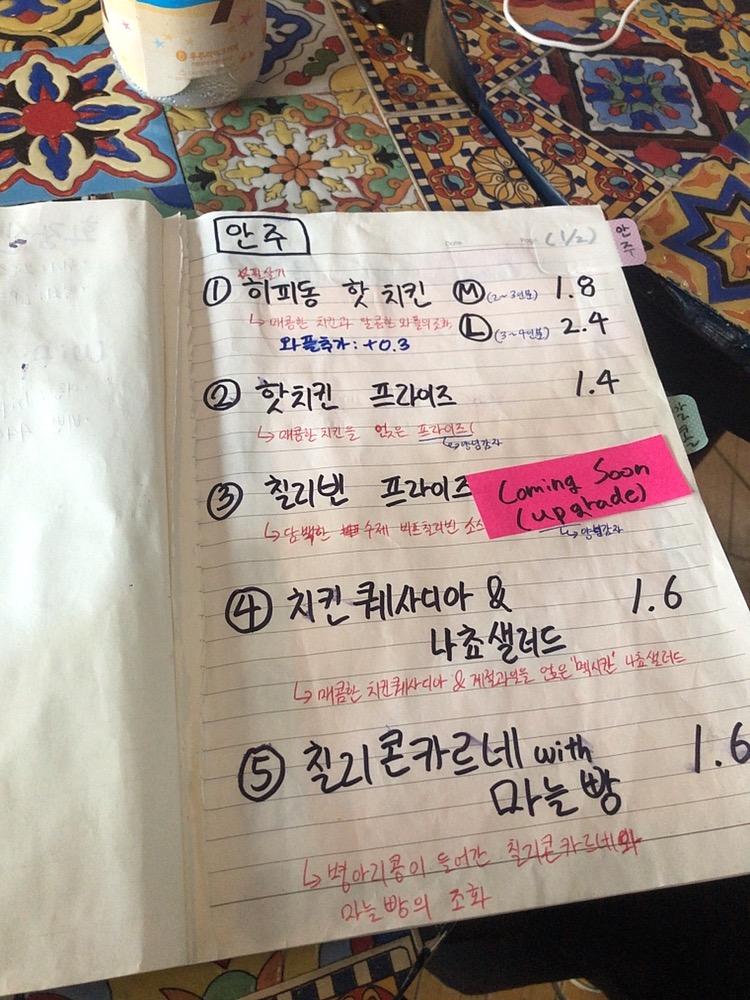 안주
(1/2)
안주
뼈 필살기
① 히피동 핫 치킨 Ⓜ (2~3인분) 1.8
↳ 매콤한 치킨과 달콤한 와플의 조화
Ⓛ (3~4인분) 2.4
와플추가: +0.3
② 핫치킨 프라이즈 1.4
↳ 매콤한 치킨을 얹은 프라이즈!
↳ 양념감자
③ 칠리빈 프라이즈
Coming Soon
(upgrade)
↳ 담백한 수제 비프칠리빈 소스
↳ 양념감자
④ 치킨 퀘사디아 & 1.6
나쵸샐러드
↳ 매콤한 치킨퀘사디아 & 계절과일을 얹은 '멕시칸' 나쵸샐러드
⑤ 칠리콘카르네 with 1.6
마늘빵
↳ 병아리콩이 들어간 칠리콘카르네와
마늘빵의 조화